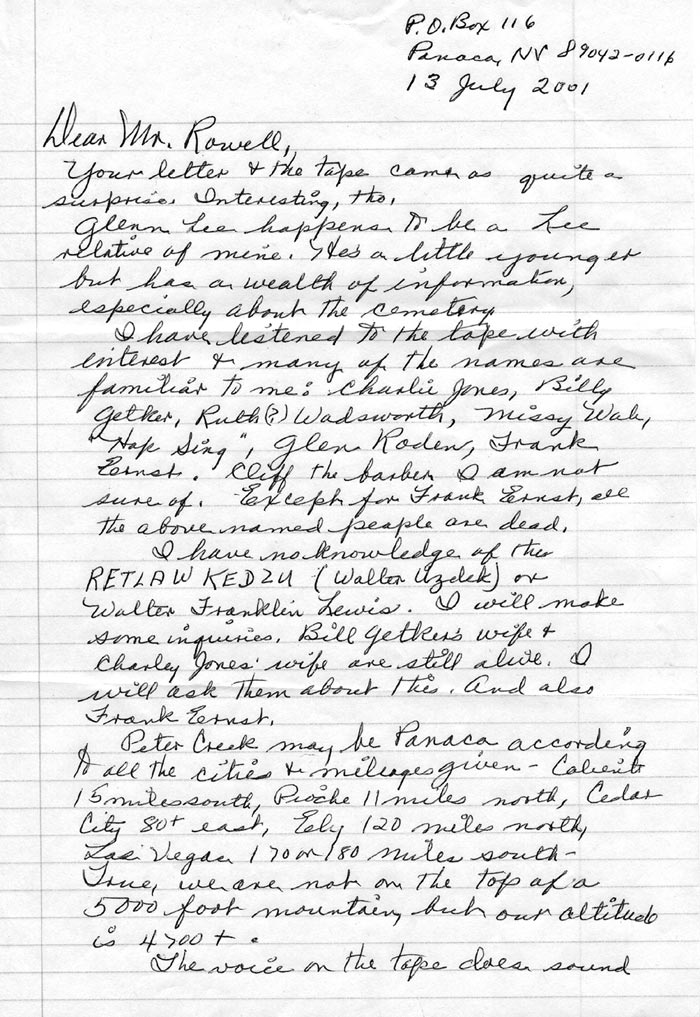 P.O. Box 116
Panaca, NV 89042-0116
13 July 2001
Dear Mr. Rowell,
Your letter & the tape came as quite a
surprise. Interesting, tho.
Glenn Lee happens to be a Lee
relative of mine. He's a little younger
but has a wealth of information,
especially about the cemetery.
I have listened to the tape with
interest & many of the names are
familiar to me: Charlie Jones, Billy
Getker, Ruth(?) Wadsworth, Missy Wah,
"Hop Sing", Glen Roden, Frank
Ernst. Cliff the barber I am not
sure of. Except for Frank Ernst, all
the above named people are dead.
I have no knowledge of the
RETLAW KEDZU (Walter Uzdek) or
Walter Franklin Lewis. I will make
some inquiries. Bill Getker's wife &
Charley Jones' wife are still alive. I
will ask them about this. And also
Frank Ernst.
Peter Creek may be Panaca according
to all the cities & mileages given - Caliente
15 miles south, Pioche 11 miles north, Cedar
City 80+ east, Ely 120 miles north,
Las Vegas 170 or 180 miles south -
True, we are not on the top of a
5000 foot mountain, but our altitude
is 4700 + .
The voice on the tape does sound